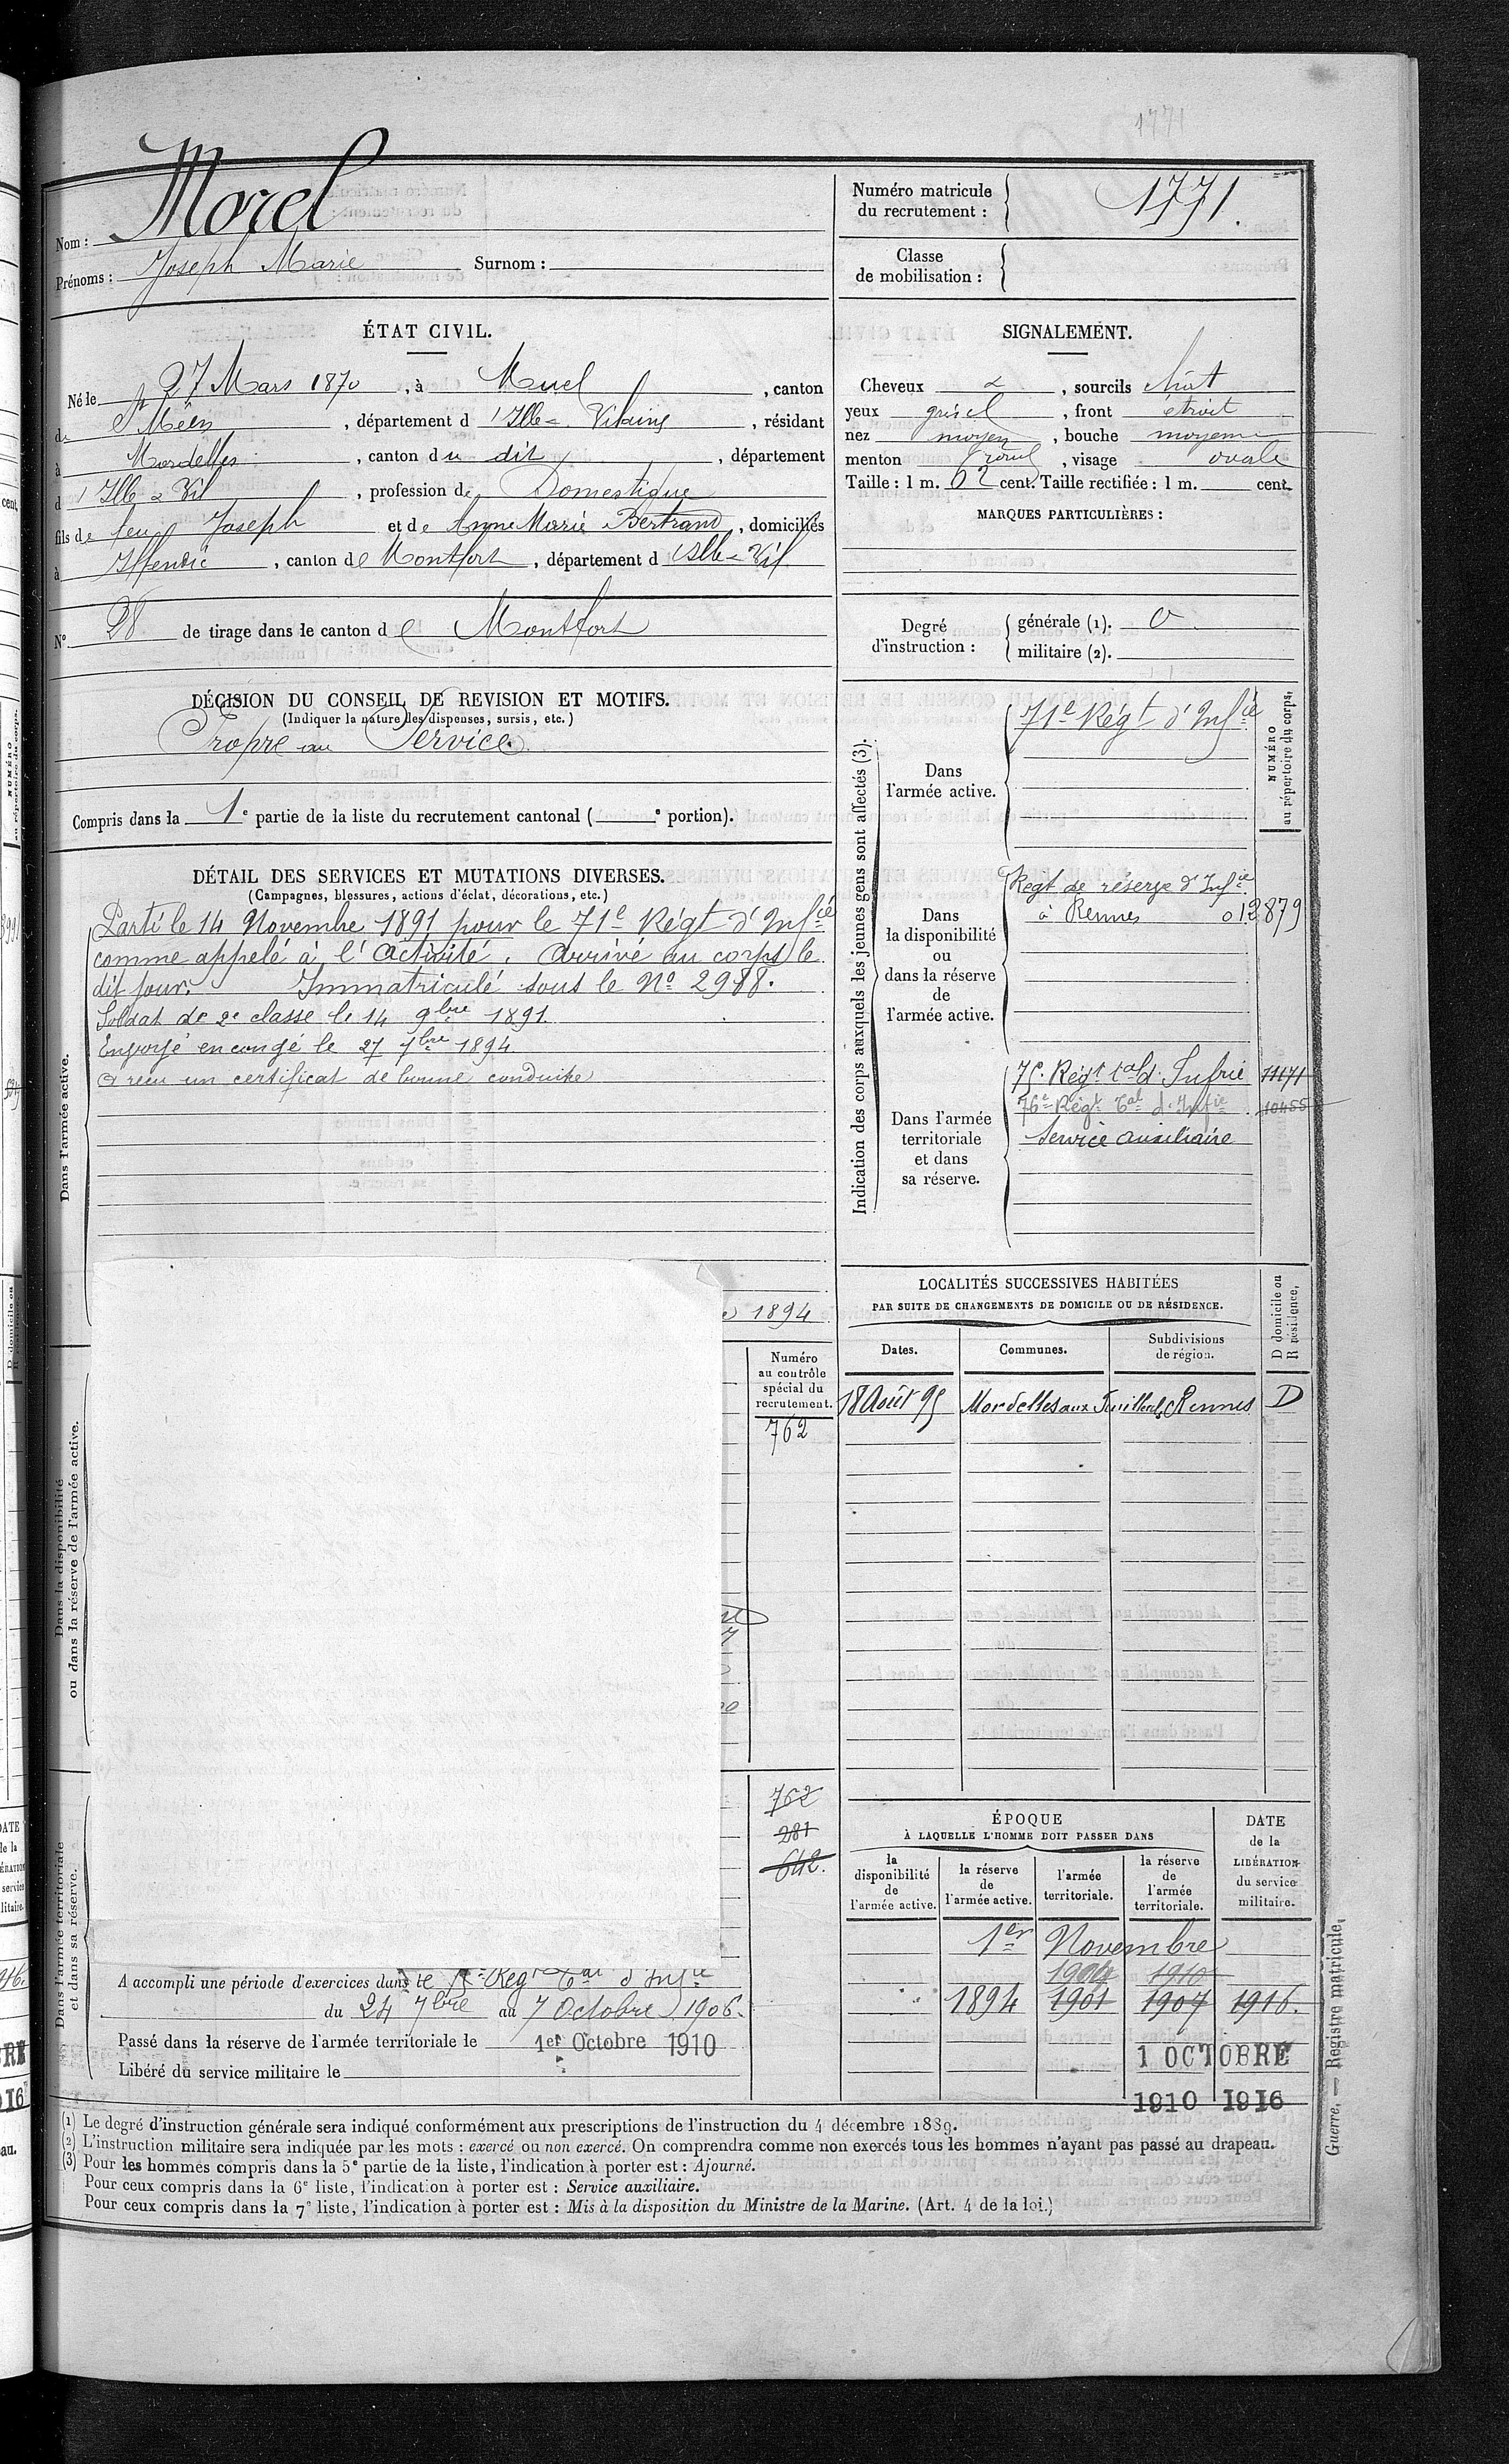 1771
Nom : Morel
Prénoms : Joseph Marie Surnom :
Numéro matricule du recrutement : 1771.
Classe de mobilisation :
ÉTAT CIVIL.
Né le 27 Mars 1870, à Muel, canton
de St Méen, département d'Ille-&-Vilaine, résidant
à Mordelles, canton du dit, département
d'Ille & Vil, profession de Domestique
fils de feu Joseph et de Anne Marie Bertrand, domiciliés
à Iffendic, canton de Montfort, département d'Ille-&-Vil
N° 28 de tirage dans le canton de Montfort
SIGNALEMENT.
Cheveux &, sourcils chât
yeux gris cl, front étroit
nez moyen, bouche moyenne
menton rond, visage ovale
Taille : 1 m. 62 cent. Taille rectifiée : 1 m. cent.
MARQUES PARTICULIÈRES :
Degré d'instruction : générale (1). 0
militaire (2).
DÉCISION DU CONSEIL DE REVISION ET MOTIFS.
(Indiquer la nature des dispenses, sursis, etc.)
Propre au Service.
Compris dans la 1e partie de la liste du recrutement cantonal ( e portion).
DÉTAIL DES SERVICES ET MUTATIONS DIVERSES.
(Campagnes, blessures, actions d'éclat, décorations, etc.)
Dans l'armée active.
Parti le 14 Novembre 1891 pour le 71e Régt d'Infie
comme appelé à l'activité. Arrivé au corps le
dit jour. Immatriculé sous le No 2988.
Soldat de 2e classe le 14 9bre 1891
Envoyé en congé le 27 7bre 1894
a reçu un certificat de bonne conduite
1894
Indication des corps auxquels les jeunes gens sont affectés (3).
NUMÉRO au répertoire du corps.
Dans l'armée active.
71e Régt d'Infie
Dans la disponibilité ou dans la réserve de l'armée active.
Regt de réserve d'Infie
à Rennes 012879
Dans l'armée territoriale et dans sa réserve.
75e Régt tal d'Infrie 11171
76e Régt Tal d'Infie 10455
Service auxiliaire
LOCALITÉS SUCCESSIVES HABITÉES
PAR SUITE DE CHANGEMENTS DE DOMICILE OU DE RÉSIDENCE.
Dates. Communes. Subdivisions de région. D domicile ou R résidence.
18 Août 95 Mordelles aux Rennes D
Dans la disponibilité ou dans la réserve de l'armée active.
Numéro
au contrôle
spécial du
recrutement.
762
Dans l'armée territoriale et dans sa réserve.
762
281
642.
A accompli une période d'exercices dans le Régt Tal d'Infie
du 24 7bre au 7 Octobre 1906.
Passé dans la réserve de l'armée territoriale le 1er Octobre 1910
Libéré du service militaire le
ÉPOQUE
À LAQUELLE L'HOMME DOIT PASSER DANS
la disponibilité de l'armée active.
la réserve de l'armée active.
l'armée territoriale.
la réserve de l'armée territoriale.
DATE de la LIBÉRATION du service militaire.
1er Novembre
1904 1910
1894 1901 1907 1916.
1 OCTOBRE
1910 1916
(1) Le degré d'instruction générale sera indiqué conformément aux prescriptions de l'instruction du 4 décembre 1889.
(2) L'instruction militaire sera indiquée par les mots : exercé ou non exercé. On comprendra comme non exercés tous les hommes n'ayant pas passé au drapeau.
(3) Pour les hommes compris dans la 5e partie de la liste, l'indication à porter est : Ajourné.
Pour ceux compris dans la 6e liste, l'indication à porter est : Service auxiliaire.
Pour ceux compris dans la 7e liste, l'indication à porter est : Mis à la disposition du Ministre de la Marine. (Art. 4 de la loi.)
Guerre. — Registre matricule.